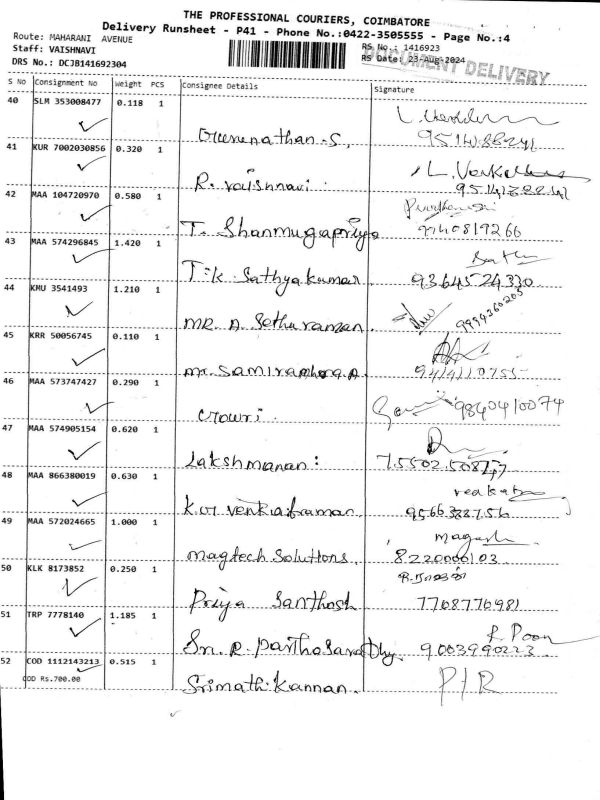 THE PROFESSIONAL COURIERS, COIMBATORE
Delivery Runsheet - P41 - Phone No.:0422-3505555 - Page No.:4
Route: MAHARANI AVENUE
RS No.: 1416923
Staff: VAISHNAVI
RS Date: 23-Aug-2024
DOCUMENT DELIVERY
DRS No.: DCJB141692304
S No Consignment No Weight PCS Consignee Details Signature
40 SLM 353008477 0.118 1
Gurunathan.S,
41 KUR 7002030856 0.320 1
R. Vaishnavi
42 MAA 104720970 0.580 1
T. Shanmugapriya
9140819266
43 MAA 574296845 1.420 1
T.K. Sathyakumar
9364524330
44 KMU 3541493 1.210 1
9994360205
MR. A. Sethuraman.
45 KRR 50056745 0.110 1
46 MAA 573747427 0.290 1
9840410074
Gowri.
47 MAA 574905154 0.620 1
Lakshmanan:
48 MAA 866380019 0.630 1
K.V. Venkatraman
49 MAA 572024665 1.000 1
Magesh
Magtech Solutions.
8220000103
50 KLK 8173852 0.250 1
Priya Santhosh
7708770981
51 TRP 7778140 1.185 1
R. Poon
Sri. R. Parthasarathy.
9003990223
52 COD 1112143213 0.515 1
COD Rs.700.00
Srimathi Kannan.
P/R